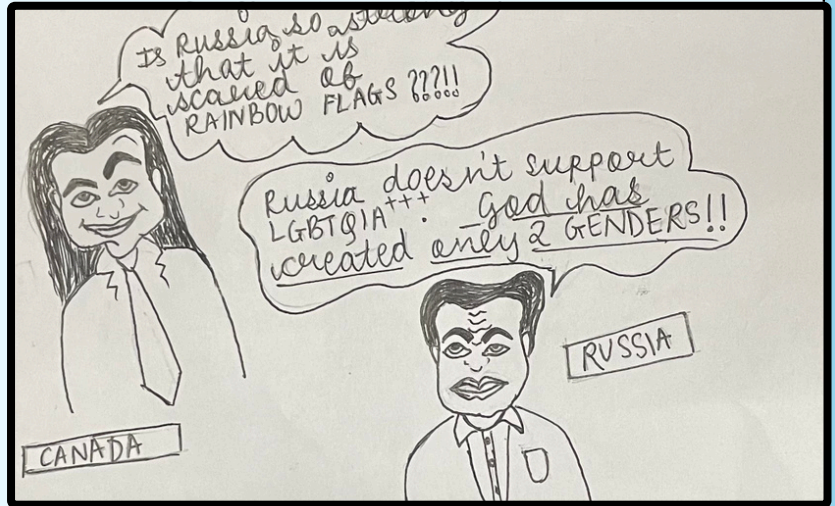 Is Russia so strong
that it is
scared of
RAINBOW FLAGS ???!!
Russia doesn't support
LGBTQIA+++. God has
created only 2 GENDERS!!
RUSSIA
CANADA